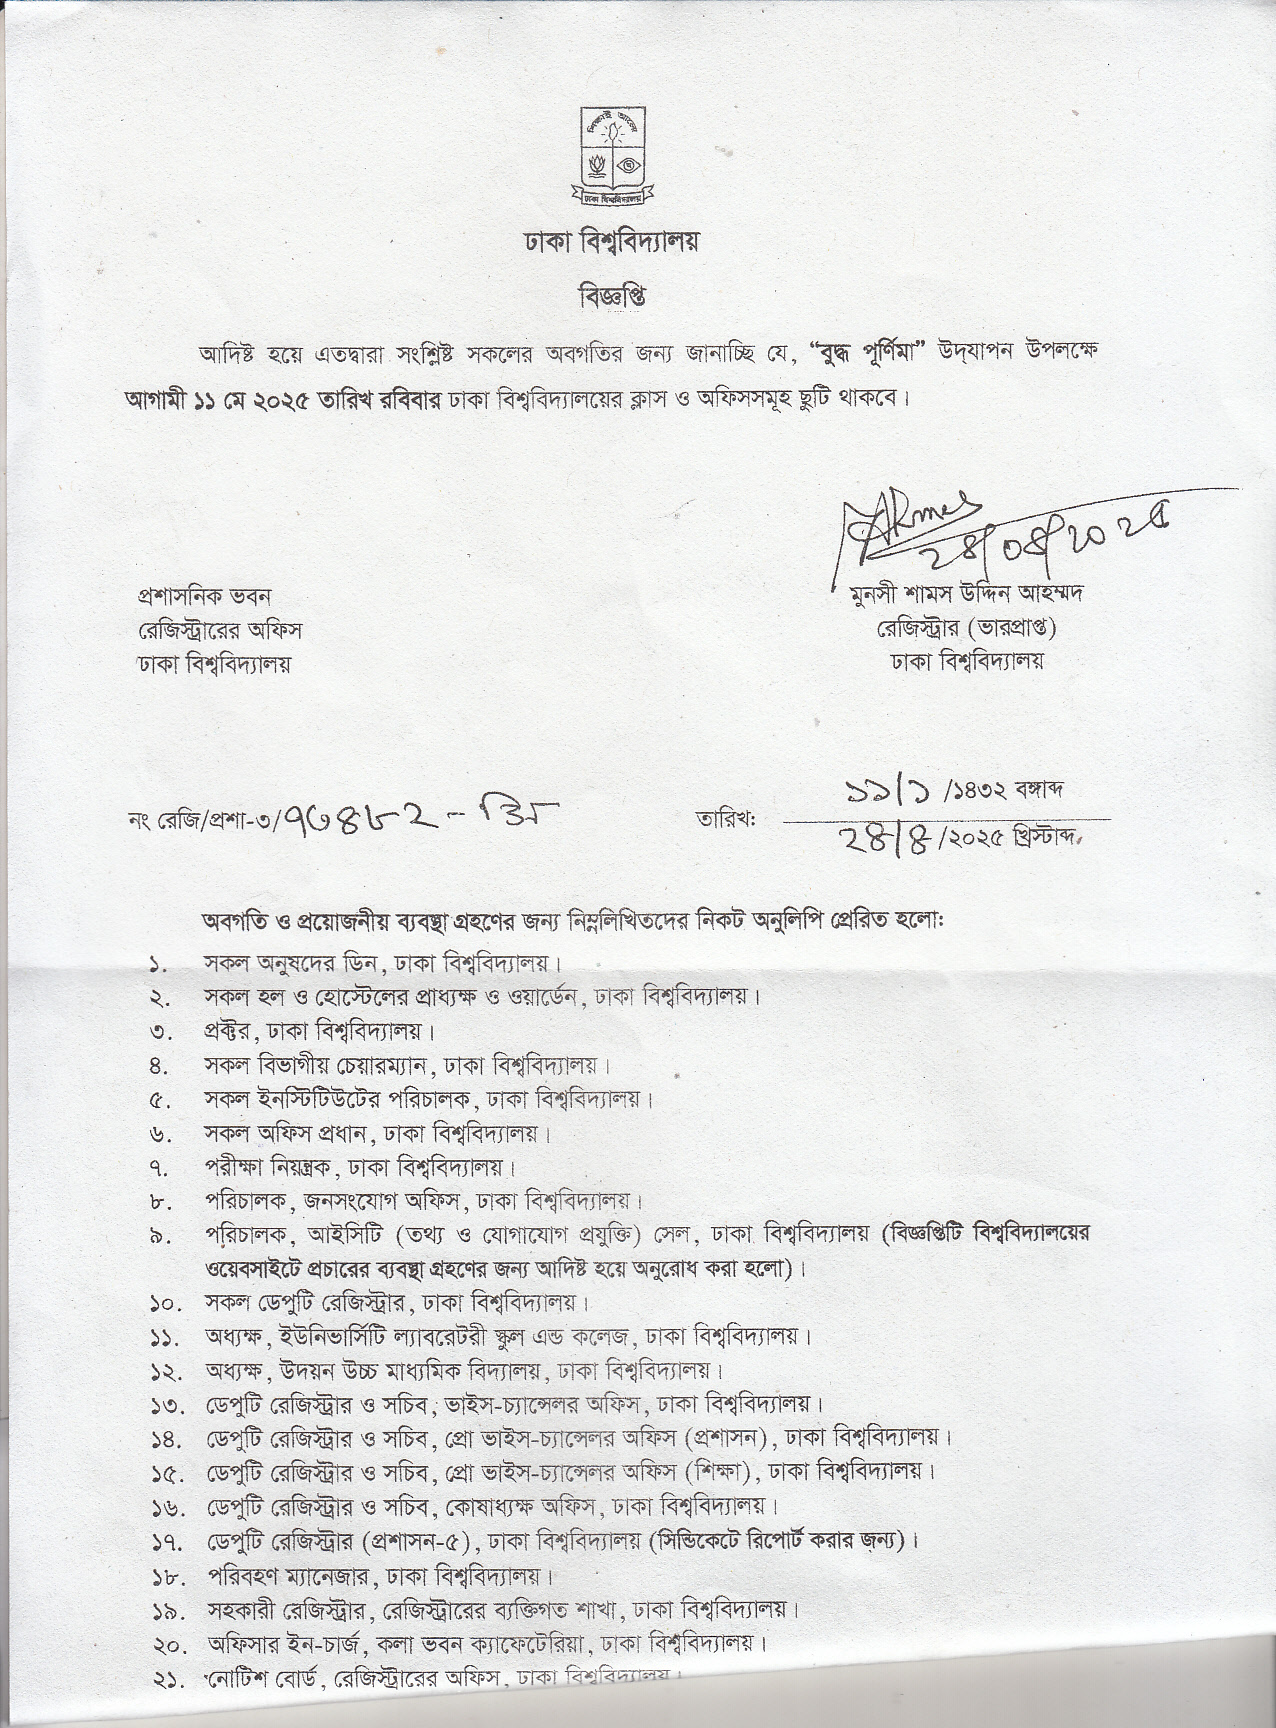 শিক্ষাই আলো
ঢাকা বিশ্ববিদ্যালয়
ঢাকা বিশ্ববিদ্যালয়
বিজ্ঞপ্তি
আদিষ্ট হয়ে এতদ্বারা সংশ্লিষ্ট সকলের অবগতির জন্য জানাচ্ছি যে, “বুদ্ধ পূর্ণিমা” উদ্‌যাপন উপলক্ষে
আগামী ১১ মে ২০২৫ তারিখ রবিবার ঢাকা বিশ্ববিদ্যালয়ের ক্লাস ও অফিসসমূহ ছুটি থাকবে।
২৪/০৪/২০২৫
প্রশাসনিক ভবন
রেজিস্ট্রারের অফিস
ঢাকা বিশ্ববিদ্যালয়
মুনসী শামস উদ্দিন আহম্মদ
রেজিস্ট্রার (ভারপ্রাপ্ত)
ঢাকা বিশ্ববিদ্যালয়
নং রেজি/প্রশা-৩/৭৩৪৮২-
তারিখ:
১১/১/১৪৩২ বঙ্গাব্দ
২৪/৪/২০২৫ খ্রিস্টাব্দ
অবগতি ও প্রয়োজনীয় ব্যবস্থা গ্রহণের জন্য নিম্নলিখিতদের নিকট অনুলিপি প্রেরিত হলো:
১. সকল অনুষদের ডিন, ঢাকা বিশ্ববিদ্যালয়।
২. সকল হল ও হোস্টেলের প্রাধ্যক্ষ ও ওয়ার্ডেন, ঢাকা বিশ্ববিদ্যালয়।
৩. প্রক্টর, ঢাকা বিশ্ববিদ্যালয়।
৪. সকল বিভাগীয় চেয়ারম্যান, ঢাকা বিশ্ববিদ্যালয়।
৫. সকল ইনস্টিটিউটের পরিচালক, ঢাকা বিশ্ববিদ্যালয়।
৬. সকল অফিস প্রধান, ঢাকা বিশ্ববিদ্যালয়।
৭. পরীক্ষা নিয়ন্ত্রক, ঢাকা বিশ্ববিদ্যালয়।
৮. পরিচালক, জনসংযোগ অফিস, ঢাকা বিশ্ববিদ্যালয়।
৯. পরিচালক, আইসিটি (তথ্য ও যোগাযোগ প্রযুক্তি) সেল, ঢাকা বিশ্ববিদ্যালয় (বিজ্ঞপ্তিটি বিশ্ববিদ্যালয়ের
ওয়েবসাইটে প্রচারের ব্যবস্থা গ্রহণের জন্য আদিষ্ট হয়ে অনুরোধ করা হলো)।
১০. সকল ডেপুটি রেজিস্ট্রার, ঢাকা বিশ্ববিদ্যালয়।
১১. অধ্যক্ষ, ইউনিভার্সিটি ল্যাবরেটরী স্কুল এন্ড কলেজ, ঢাকা বিশ্ববিদ্যালয়।
১২. অধ্যক্ষ, উদয়ন উচ্চ মাধ্যমিক বিদ্যালয়, ঢাকা বিশ্ববিদ্যালয়।
১৩. ডেপুটি রেজিস্ট্রার ও সচিব, ভাইস-চ্যান্সেলর অফিস, ঢাকা বিশ্ববিদ্যালয়।
১৪. ডেপুটি রেজিস্ট্রার ও সচিব, প্রো ভাইস-চ্যান্সেলর অফিস (প্রশাসন), ঢাকা বিশ্ববিদ্যালয়।
১৫. ডেপুটি রেজিস্ট্রার ও সচিব, প্রো ভাইস-চ্যান্সেলর অফিস (শিক্ষা), ঢাকা বিশ্ববিদ্যালয়।
১৬. ডেপুটি রেজিস্ট্রার ও সচিব, কোষাধ্যক্ষ অফিস, ঢাকা বিশ্ববিদ্যালয়।
১৭. ডেপুটি রেজিস্ট্রার (প্রশাসন-৫), ঢাকা বিশ্ববিদ্যালয় (সিন্ডিকেটে রিপোর্ট করার জন্য)।
১৮. পরিবহণ ম্যানেজার, ঢাকা বিশ্ববিদ্যালয়।
১৯. সহকারী রেজিস্ট্রার, রেজিস্ট্রারের ব্যক্তিগত শাখা, ঢাকা বিশ্ববিদ্যালয়।
২০. অফিসার ইন-চার্জ, কলা ভবন ক্যাফেটেরিয়া, ঢাকা বিশ্ববিদ্যালয়।
২১. নোটিশ বোর্ড, রেজিস্ট্রারের অফিস, ঢাকা বিশ্ববিদ্যালয়।